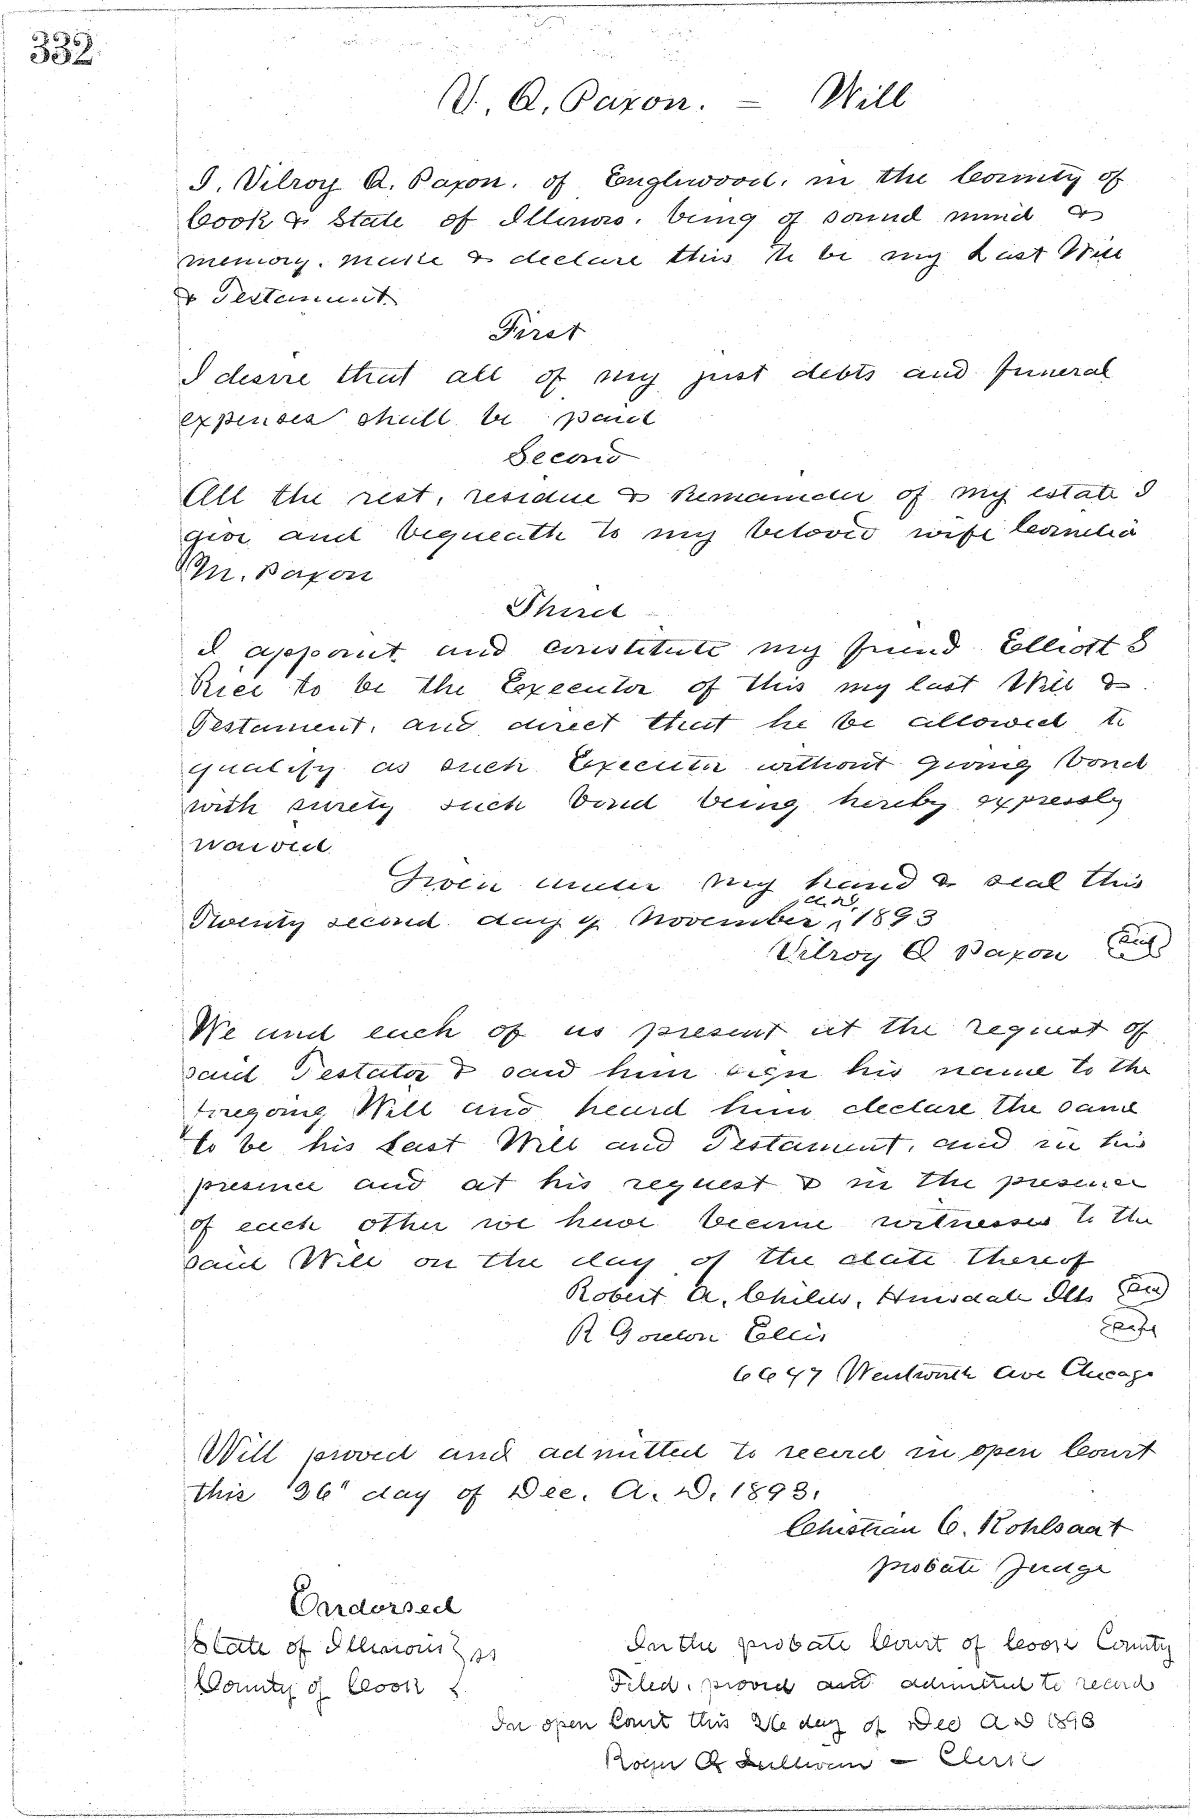 332
V. A. Paxon. = Will
I, Vilroy A. Paxon. of Englewood, in the County of
Cook & State of Illinois. being of sound mind &
memory. make & declare this to be my Last Will
& Testament.
First
I desire that all of my just debts and funeral
expenses shall be paid
Second
All the rest, residue & Remainder of my estate I
give and bequeath to my beloved wife Cornelia
M. Paxon
Third
I appoint and constitute my friend Elliott S
Rice to be the Executor of this my last Will &
Testament, and direct that he be allowed to
qualify as such Executor without giving bond
with surety such bond being hereby expressly
waived.
Given under my hand & seal this
Twenty second day of November A.D. 1893
Vilroy A Paxon Seal
We and each of us present at the request of
said Testator & saw him sign his name to the
foregoing Will and heard him declare the same
to be his Last Will and Testament, and in his
presence and at his request & in the presence
of each other we have become witnesses to the
said Will on the day of the date thereof
Robert A. Childs, Hinsdale Ills Seal
R Gordon Ellis Seal
6647 Wentworth Ave Chicago
Will proved and admitted to record in open Court
this 26" day of Dec. A. D. 1893.
Christian C. Kohlsaat
Probate Judge
Endorsed
State of Illinois } ss
County of Cook }
In the probate Court of Cook County
Filed, proved and admitted to record
In open Court this 26 day of Dec A D 1893
Roger C Sullivan – Clerk